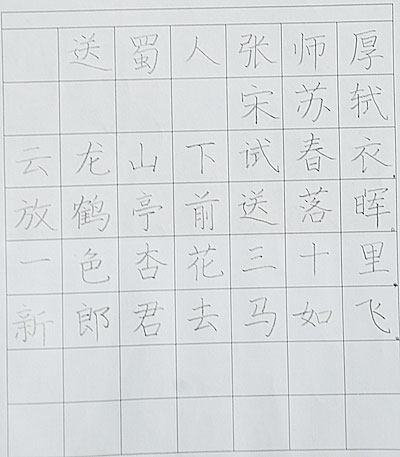 送蜀人张师厚
宋苏轼
云龙山下试春衣
放鹤亭前送落晖
一色杏花三十里
新郎君去马如飞